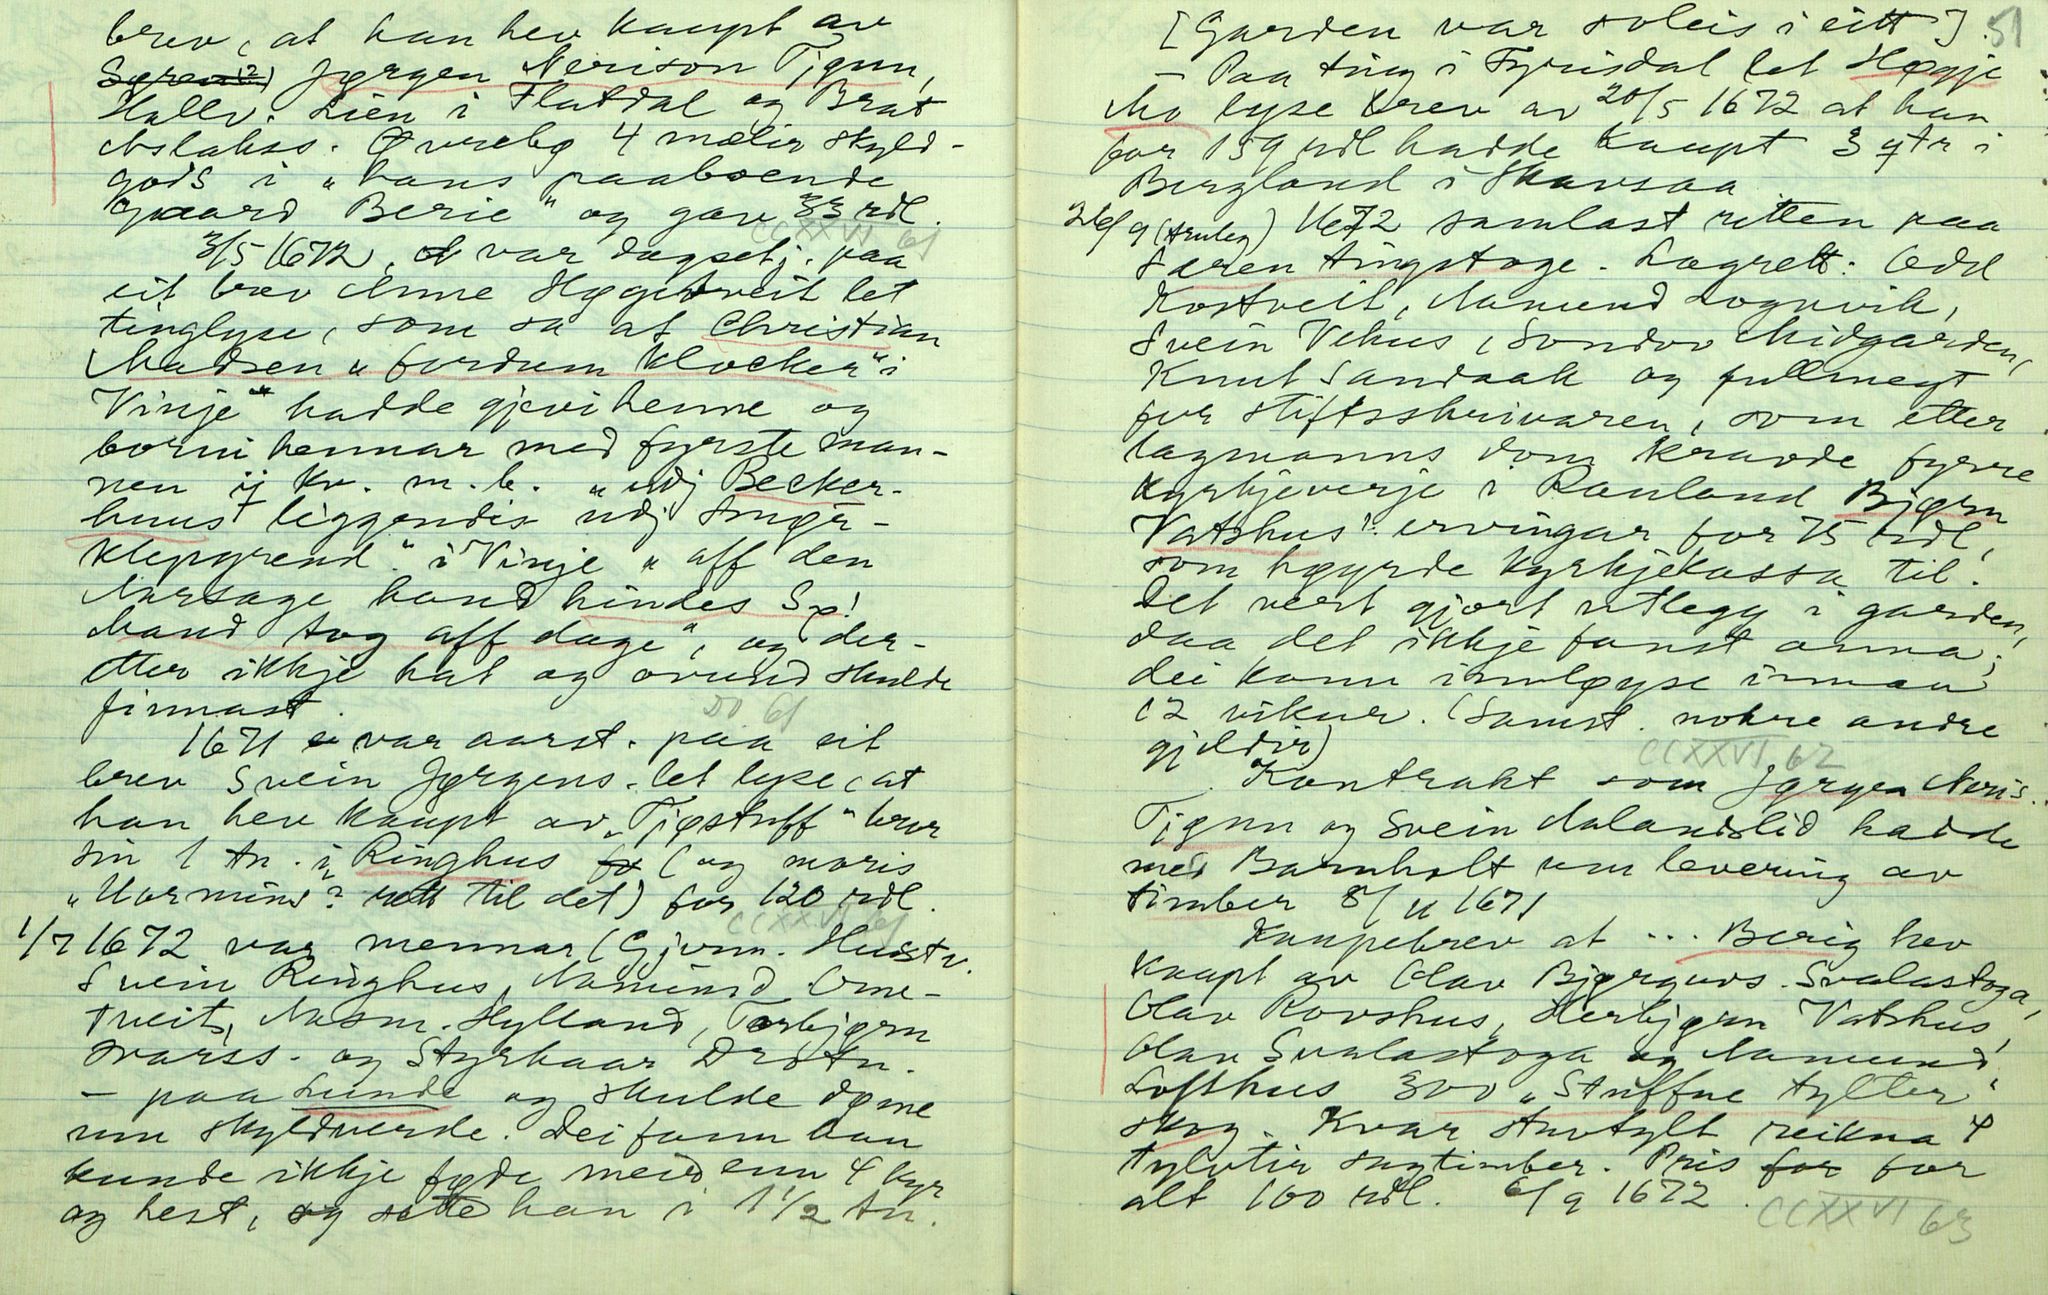 brev, at han hev kaupt av
Jørgen Nerison Tjønn,
Hallv. Lien i Flatdal og Brat
Aslakss. Øvrebø 4 mælir skyld-
gods i "hans paaboende
gaard Berie" og gav 33 rdl.
CCXXVI 61
3/5 1672, var dagsetj. paa
eit brev Anne Høgetveit let
tinglyse, som sa at Christian
Madsen "fordum Klocker" i
Vinje" hadde gjevi henne og
borni hennar med fyrste man-
nen ij kv. m. l. "udj Becker-
huus liggendis udj Smør-
klepgrend." i Vinje "aff den
Aarsage hand hindes Sø!
Mand tog aff dage", og der-
etter ikkje hat og ovund skulde
finnast.
DO 61
1671 var aarst. paa eit
brev Svein Jørgens. let lyse, at
han hev kaupt av "Tjøstuff" bror
sin 1 tn. i Ringhus (og moris
"Marmins"? rett til det) for 120 rdl.
CCXXVI 61
1/7 1672 var mennar (Gjerm. Hustv.
Svein Ringhus, Aamund Orme-
tveit, Aasm. Hylland, Torbjørn
Svarss. og Styrkaar Drotn.
– paa Lunde og skulde døme
um skyldverde. Dei fann han
kunde ikkje føde meir enn 4 kyr
og hest, og sette han i 1 1/2 tn.
[Garden var soleis i eitt]. 51
– Paa ting i Fyrisdal let Høgje
Mo lyse brev av 20/5 1672 at han
for 159 rdl hadde kaupt 3 qtr i
Bergland i Skavsaa
26/9 1672 samlast retten paa
Søren tingstoge. Lagrett: Odd
Kostveit, Aamund Lognvik,
Svein Vehus, Sondov Midgarden,
Knut Sandaak og fullmegt
for stiftsskrivaren, som etter
lagmanns dom kravde fyrre
kyrkjeverje i Rauland Bjørn
Vatshus' ervingar for 75 rdl,
som høyrde kyrkjekassa til.
Det vert gjort utlegg i garden,
daa det ikkje fanst anna;
dei kann innløyse innan
12 vikur. (Samst. nokre andre
gjeldir)
CCXXVI 62
Kontrakt som Jørgen Neris.
Tjønn og Svein Aalandslid hadde
med Barnholt um levering av
timber 8/11 1671
Kaupebrev at ... Berig hev
kaupt av Olav Bjørguvs. Svalastoga,
Olav Rovshus, Herbjørn Vatshus,
Olav Svalastoga og Aamund
Lofthus 300 "Stuffne tylter"
skog. Kvar stuvtylt reikna 4
tylvtir sagtimber. Pris for
alt 100 rdl. 6/9 1672.
CCXXVI 63